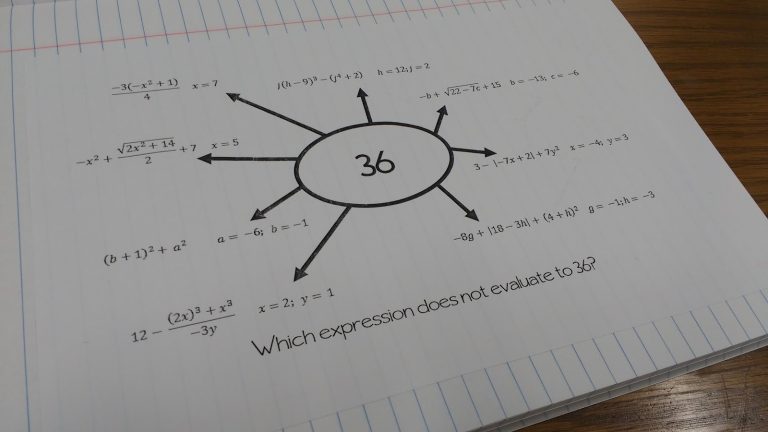 −3(−x² + 1) / 4   x = 7
j(h − 9)³ − (j⁴ + 2)   h = 12; j = 2
−b + √(22 − 7c) + 15   b = −13; c = −6
−x² + √(2x² + 14) / 2 + 7   x = 5
36
3 − |−7x + 2| + 7y²   x = −4; y = 3
(b + 1)² + a²   a = −6; b = −1
−8g + |18 − 3h| + (4 + h)²   g = −1; h = −3
12 − (2x)³ + x³ / −3y   x = 2; y = 1
Which expression does not evaluate to 36?